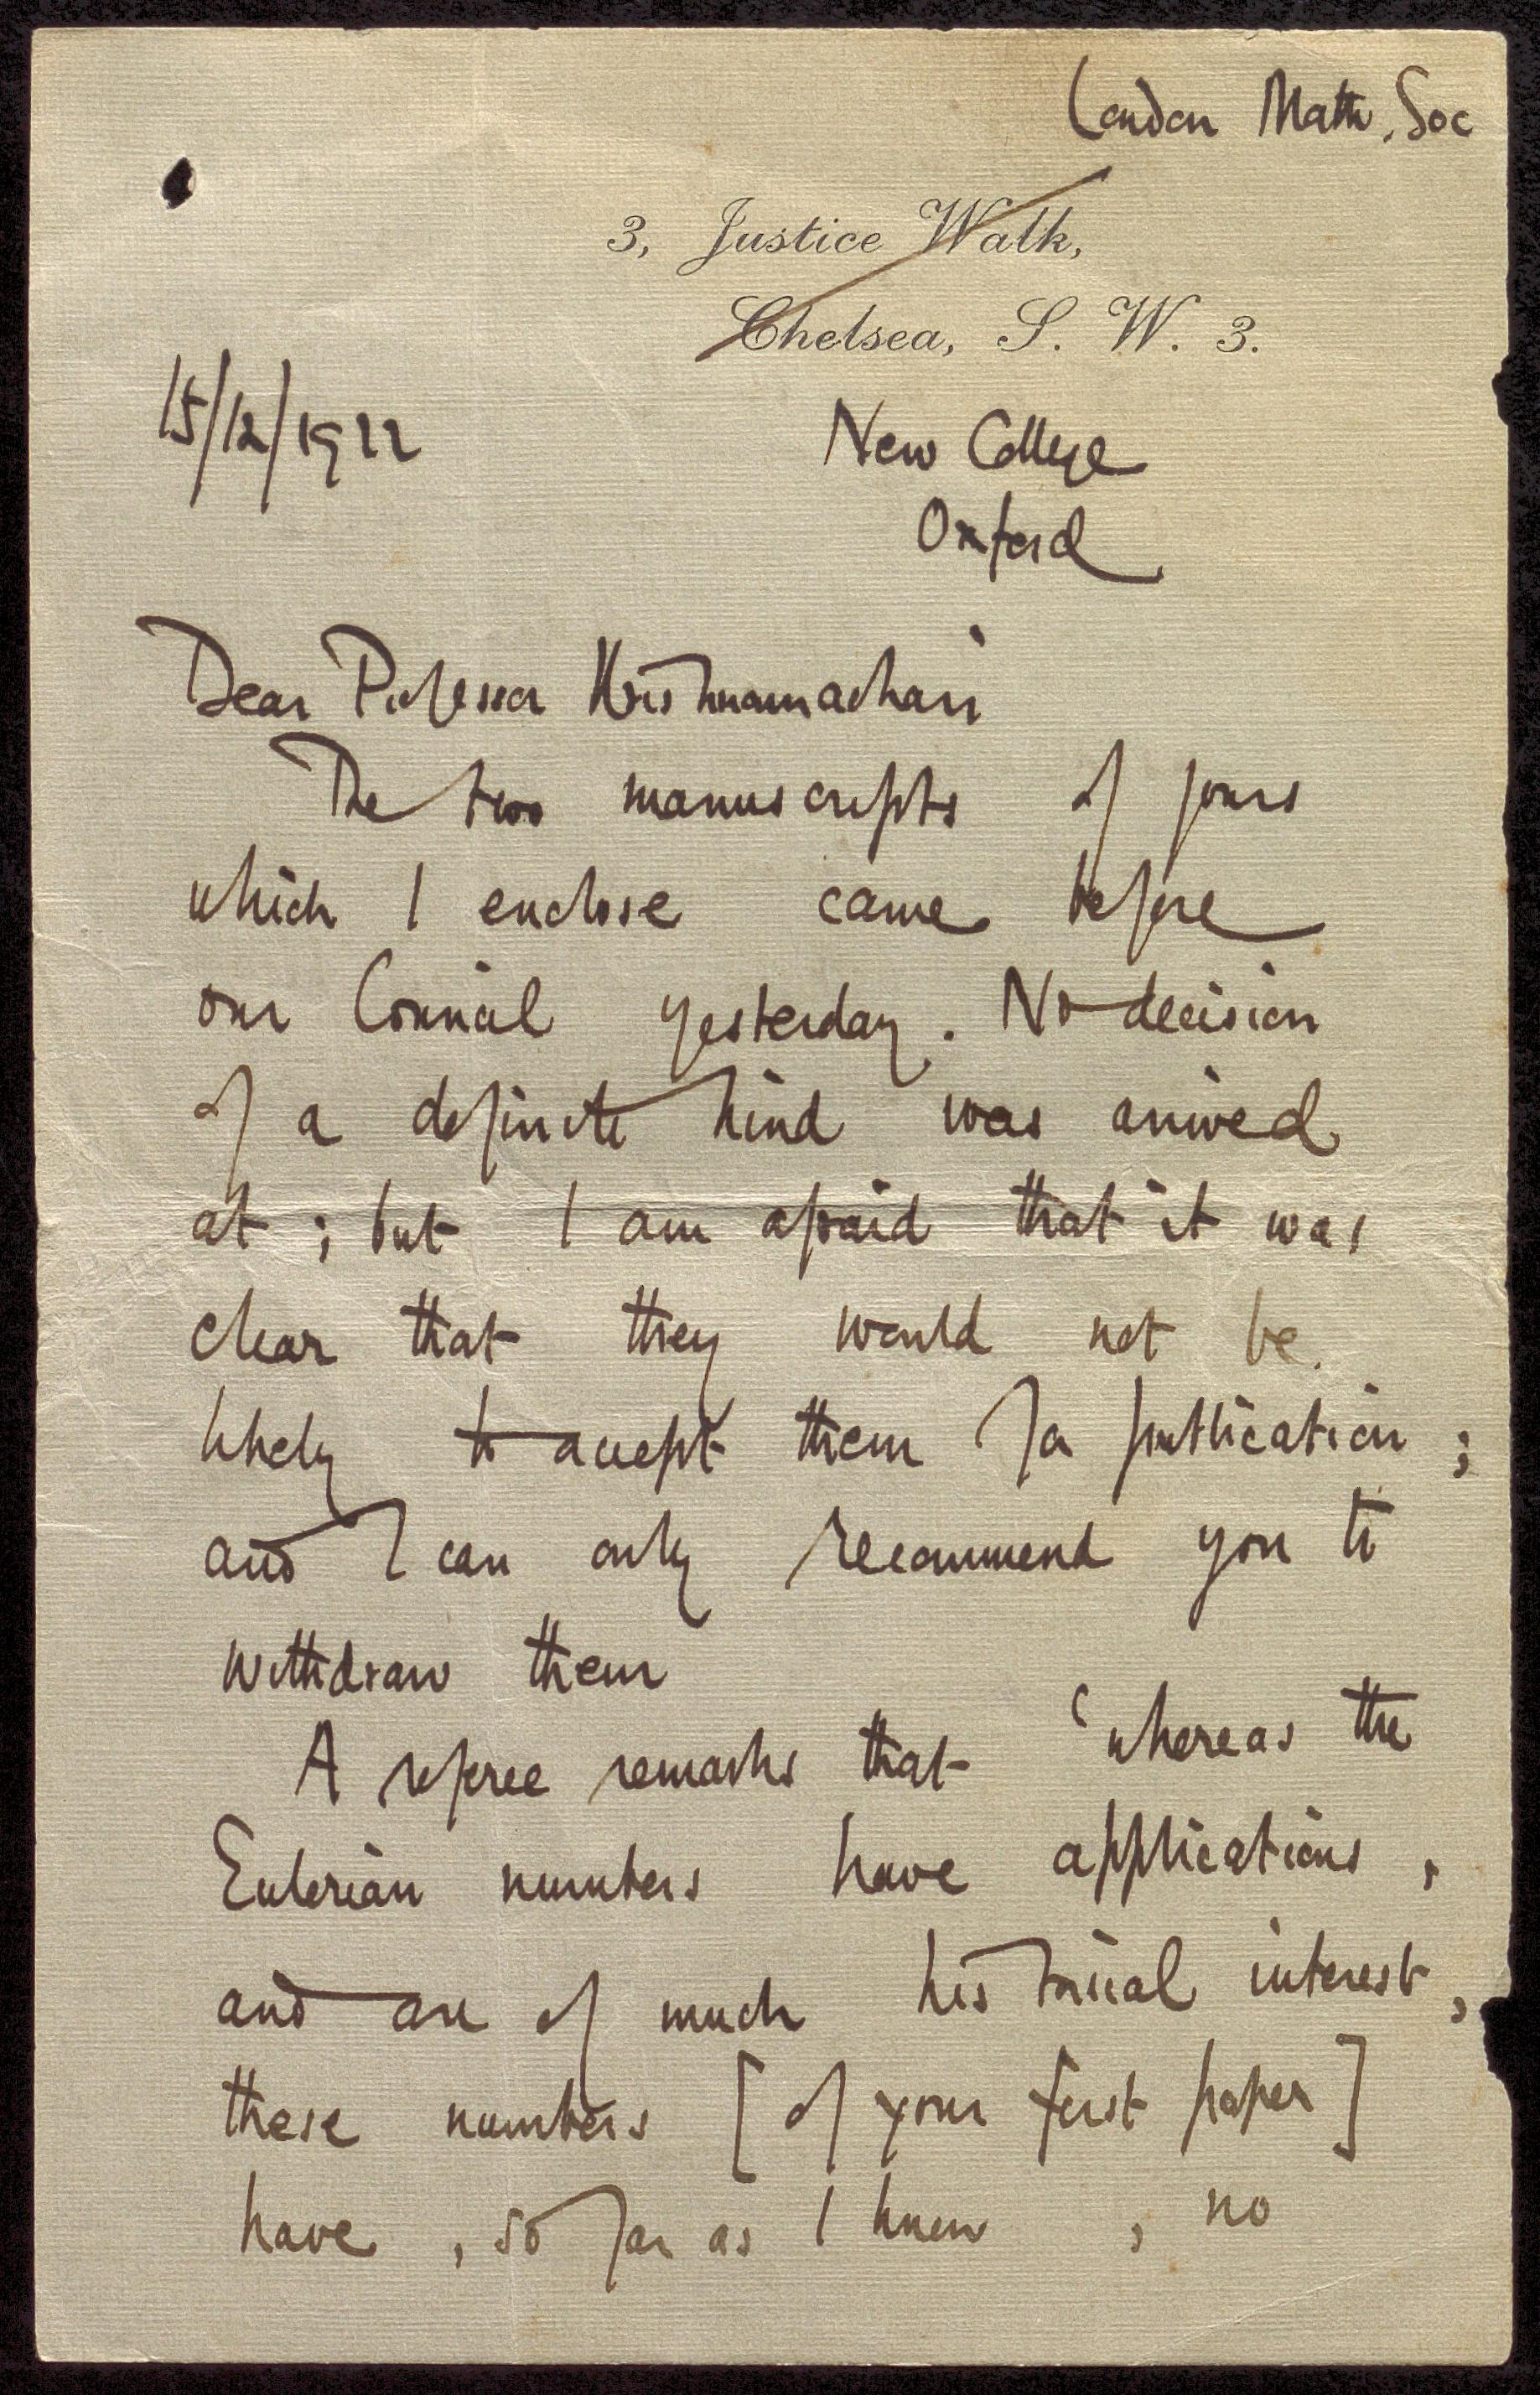 London Math. Soc
3, Justice Walk,
Chelsea, S. W. 3.
15/12/1922
New College
Oxford
Dear Professor Krishnamachari
The two manuscripts of yours
which I enclose came before
our Council yesterday. No decision
of a definite kind was arrived
at ; but I am afraid that it was
clear that they would not be
likely to accept them for publication ;
and I can only recommend you to
withdraw them
A referee remarks that ‘whereas the
Eulerian numbers have applications ,
and are of much historical interest ,
these numbers [ of your first paper ]
have , so far as I know , no